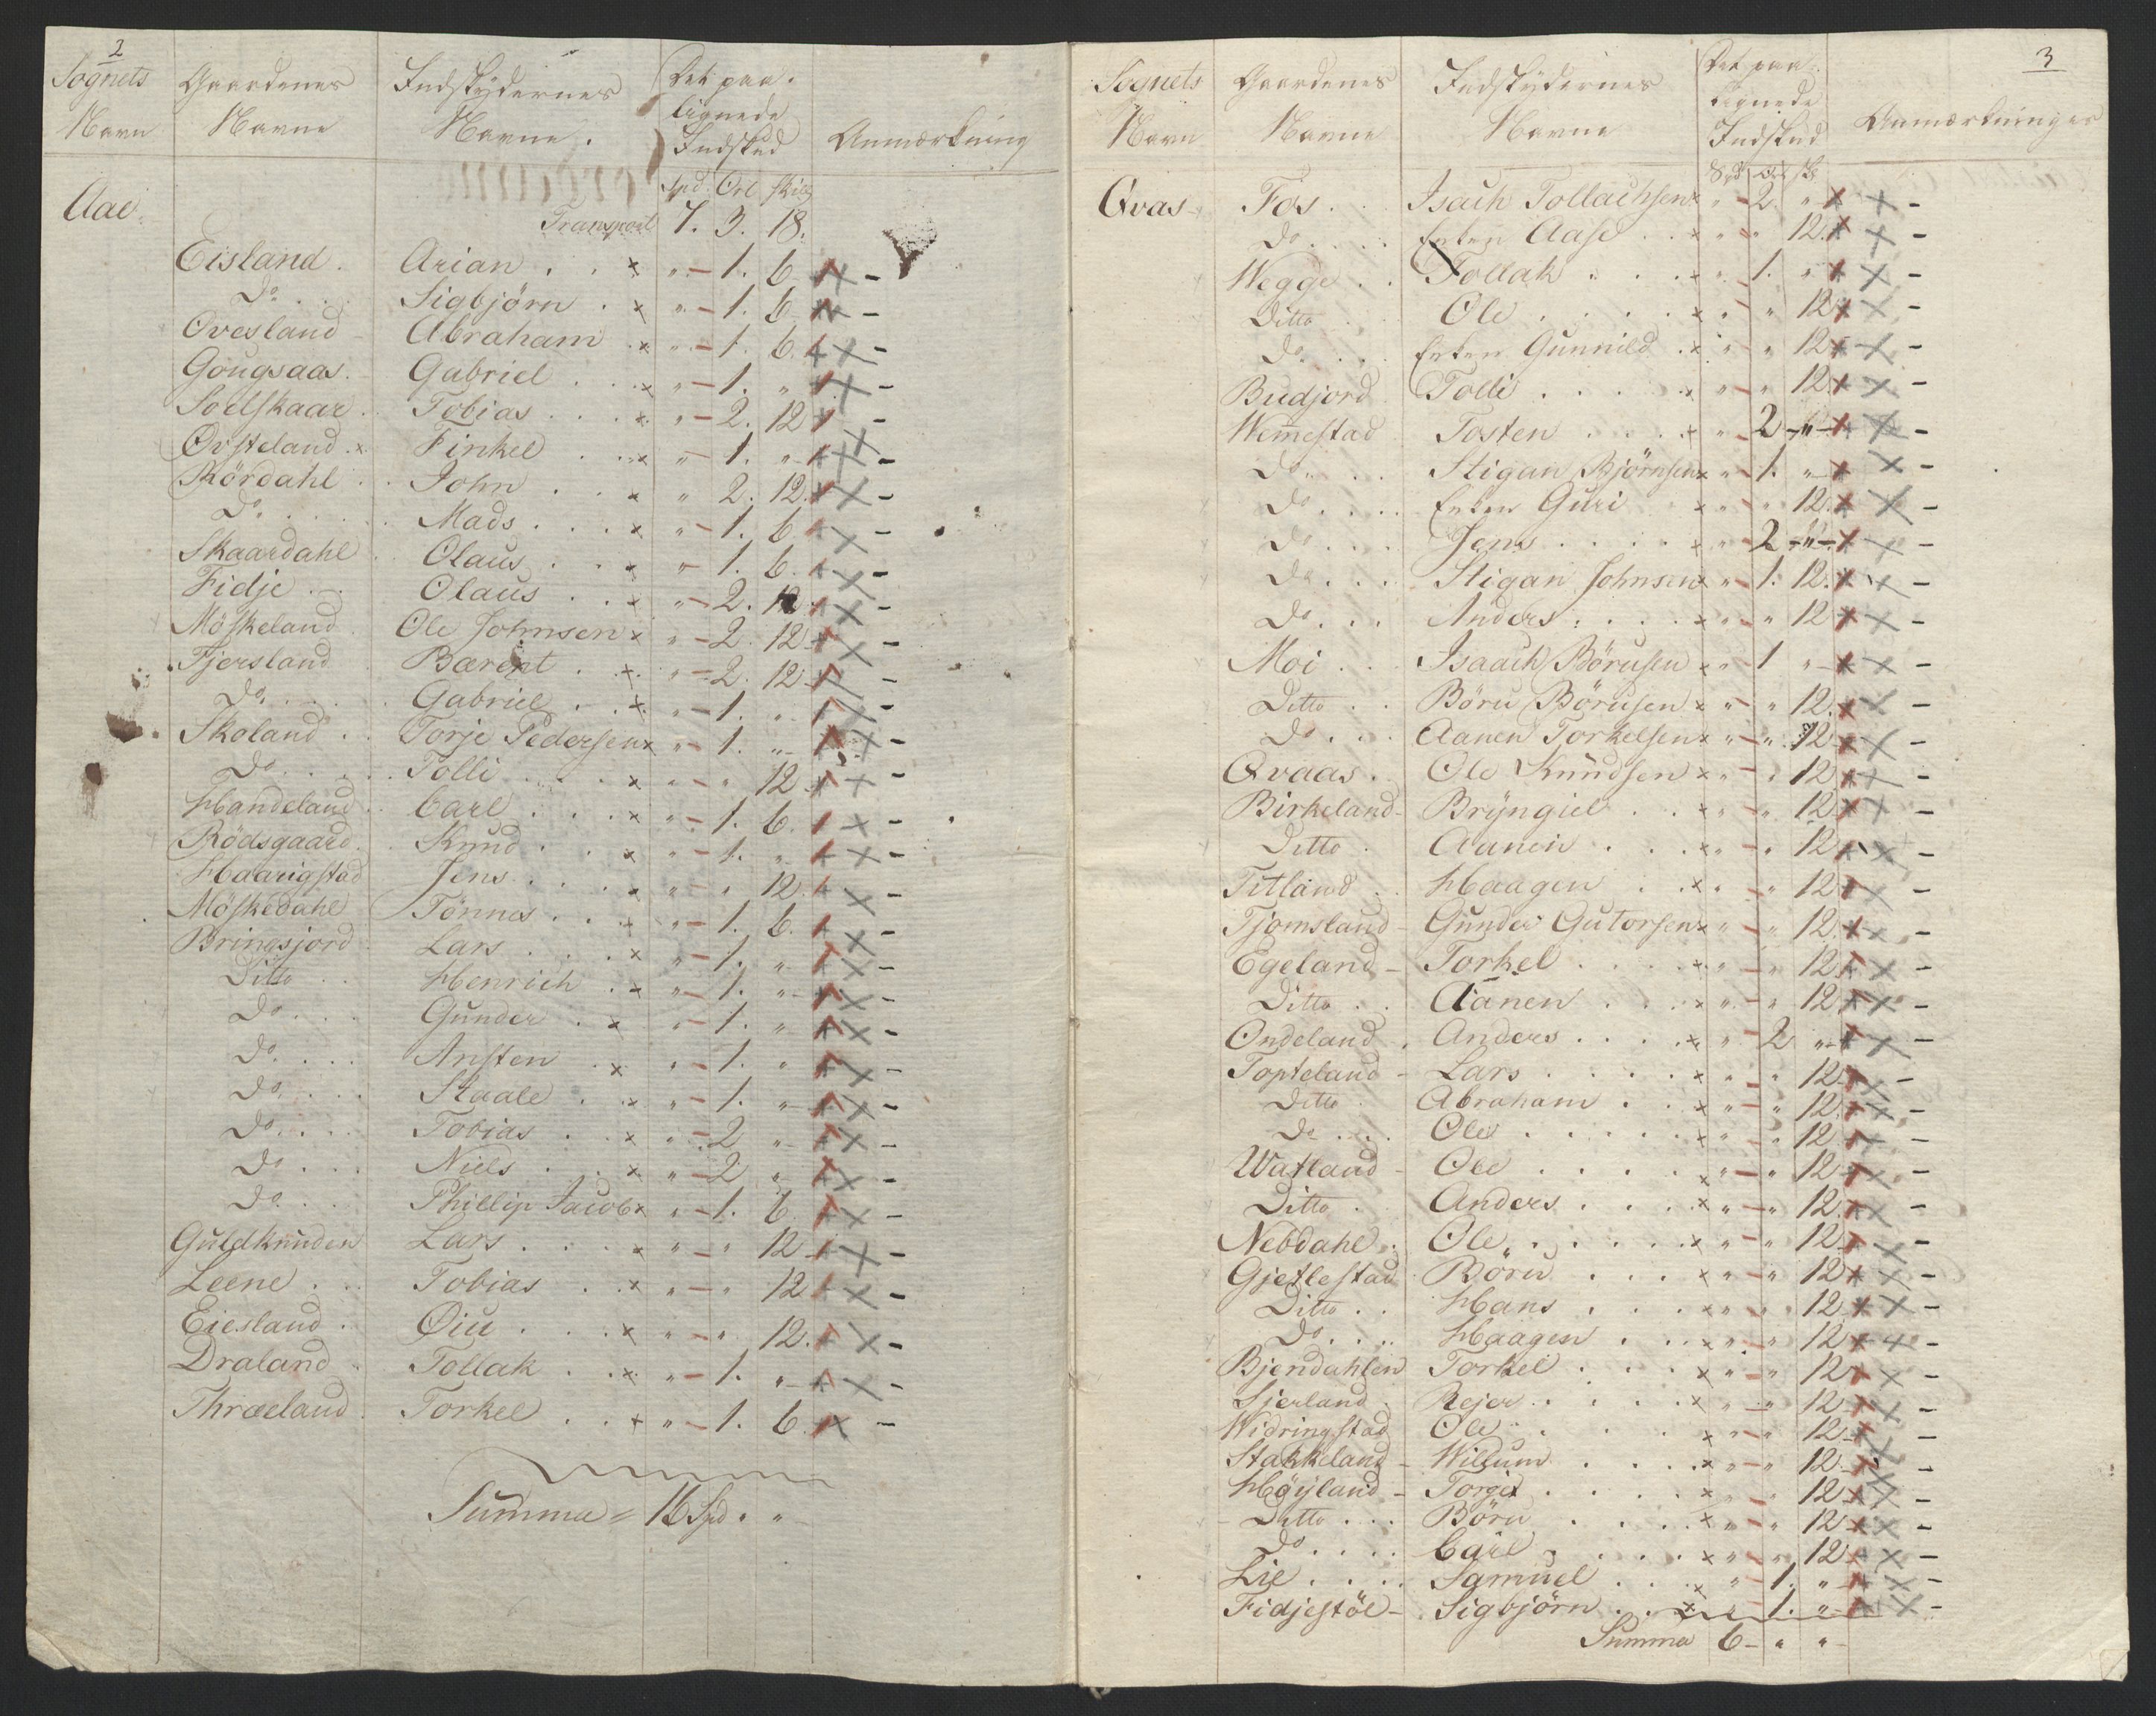 2
Sognets Navn | Gaardenes Navne | Indskydernes Navne. | Det paa lignede Indskud | Anmærkning
Spd. Ort Skill
Aae.
Transport 7. 3. 18.
Eisland. Arian . . x " - 1. 6.
Do. . . Sigbjörn . x " - 1. 6.
Ovesland Abraham . x " - 1. 6.
Gougsaas. Gabriel . . x " - 1. "
Soelskaar. Tobias . . . x " - 2. 12
Ovsteland. x Finkel . . x " - 1. "
Rördahl . John . . . x " 2. 12.
Do. . . . Mads . . . x " - 1. 6
Skaardahl . Olaus . . x " - 1. 6.
Fidje . . Olaus . . x " - 2. 12
Möskeland Ole Johnsen x " - 2. 12
Tjersland Barent . . x. " - 2. 12
Do. . . . Gabriel . . x. " - 1. "
Skoland . . Torje Pedersen x " - 1. "
Do. . . . Tolli . . . x " - " 12
Handeland. Carl . . . x " - 1. 6.
Rödsgaard. Knud . . . x " - 1. "
Haarigstad Jens . . . . x " - " 12.
Möskedahl Tönnes . . . x " - 1. 6.
Bringsjord Lars . . . x " - 1. "
Ditto . . Henrich . x " - 1. "
Do. . . . Gunder . x " - 1. "
Do. . . . Ansten . x " - 1. "
Do. . . . Staale . . x " - 1. "
Do. . . . Tobias . . x " - 2 "
Do . . . Niels . . x " - 2 "
Do. . . Phillip Jacob x " - 1. 6.
Guldknuden Lars . . . x " - " 12
Leene . . . Tobias . . x " - " 12
Eiesland . Øiu . . . x " - " 12.
Draland . Tollak . . x " - 1. "
Thræland. Torkel . . x " - 1. 6.
Summa = 16 Spd. "
3
Sognets Navn | Gaardenes Navne | Indskydernes Navne | Det paa lignede Indskud | Anmærkninger
Spd Ort Sk
Qvas Fos . . Isach Tollachsen x " - 2. "
Do. . . . Enken Aase . . x " " 12.
Wegge . . Tollak . . . . x " 1. "
Ditto Ole . . . . . x " - " 12
Do. . . . Enken Gunnild . x " - " 12
Budjord Tolli . . . . . x " - " 12
Wemestad Tosten . . . . x " 2 - " -
Do. . . . Stigan Björnsen x " - 1. "
Do. . . . Enken Guri x " - " 12.
Do. . . . Jens . . . . . x " 2 - " -
Do. . . . Stigan Johnsen x " 1. 12.
Do. . . Anders . . . . x " - " 12
Moi . . . Isaach Börusen x " 1 "
Ditto . . Böru Börusen x " - " 12.
Do. . . . Aanen Torkelsen x " - " 12
Qvaas . Ole Knudsen x " - " 12
Birkeland - Bryngiel . . x " - " 12
Ditto . Aanen . . . x " - " 12
Titland . . Haagen . . x " - " 12
Tjomsland - Gunder Gutorsen x " - " 12.
Egeland - Torkel . . . . x " - " 12
Ditto . . Aanen . . . x " - " 12
Ondeland . Anders . . . . x " - 2 "
Topteland - Lars . . . . x " - " 12
Ditto . Abraham . . x " - " 12
Do . . . Ole . . . . . x " - " 12
Watland - Ole . . . . x " - " 12
Ditto . Anders . . . x " - " 12
Nebdahl . Ole . . . . . x " - " 12
Gjetlestad Böru . . . x " - " 12
Ditto . . Hans . . . x " - " 12
Do. . . . Haagen . . x " - " 12
Bjendahlen Torkel . . . x " - " 12
Sjerland . Rejer . . . . x " - " 12
Widringstad Ole . . . x " - " 12
Stakkeland - Willum . . . x " - " 12
Höyland - Torger . . . x " - " 12
Ditto . . . Böru . . . x " - " 12
Do. . . . Carl . . . . x " - " 12
Lie . . . . Samuel . . . x " - 1. "
Fidjestöl - Sigbjörn . . x " - 1. "
Summa 6 - " "